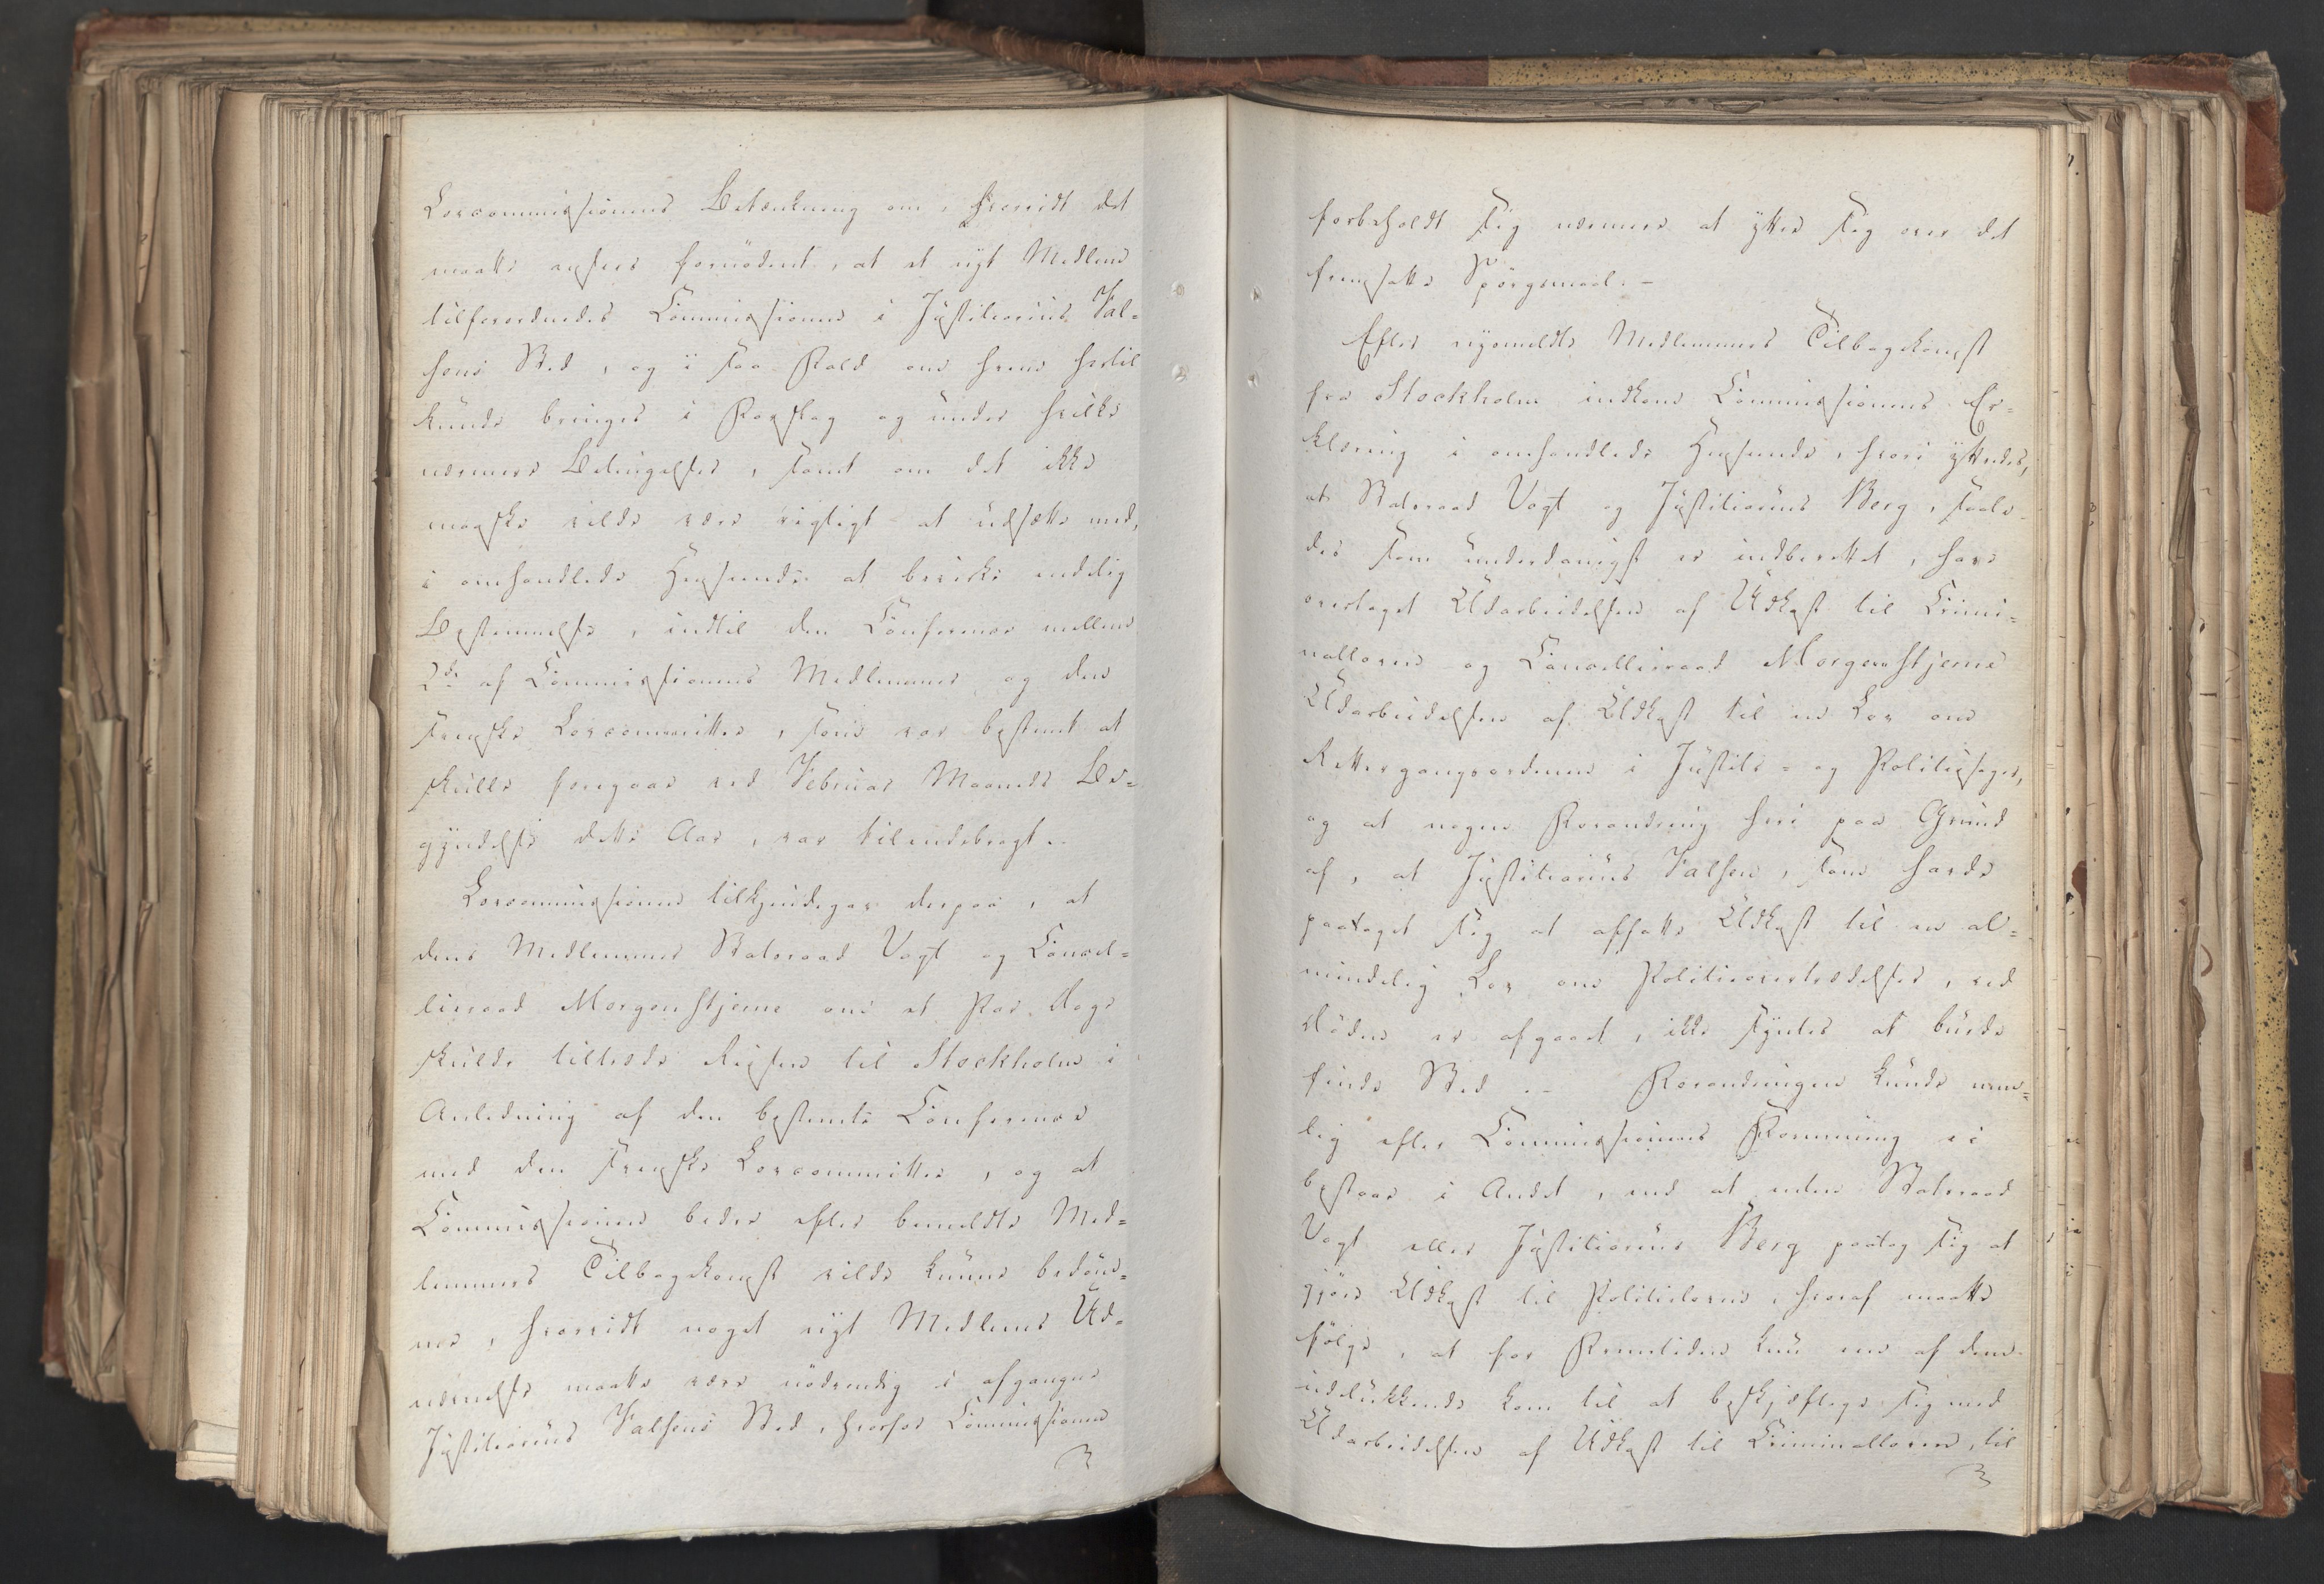 Lovcommissionens Betænkning om, hvorvidt det
maatte ansees fornødent, at et nyt Medlem
tilforordnedes Commissionen i Justitiarius Fal-
sens Sted, og i saa Fald om hvem hertil
kunde bringes i Forslag og under hvilke
nærmere Betingelser, samt om det ikke
maaske vilde være rigtigt at udsætte med,
i omhandlede Henseende at bevirke endelig
Bestemmelse, indtil den Conference mellem
2de af Commissionens Medlemmer og den
svenske Lovcommittee, som var bestemt at
skulle foregaae ved Februar Maaneds Be-
gyndelse dette Aar, var tilendebragt.
Lovcommissionen tilkjendegav derpaa, at
dens Medlemmer Statsraad Vogt og Cancel-
lieraad Morgenstjerne om et Par Dage
skulde tiltræde Reisen til Stockholm i
Anledning af den bestemte Conference
med den svenske Lovcommittee, og at
Commissionen bedre efter bemeldte Med-
lemmers Tilbagekomst vilde kunne bedøm-
me, hvorvidt noget nyt Medlems Ud-
nævnelse maatte være nødvendig i afgangne
Justitiarius Falsens Sted, hvorfor Commissionen
forbeholdt sig nærmere at yttre sig over det
fremsatte Spørgsmaal. -
Efter nysmeldte Medlemmers Tilbagekomst
fra Stockholm indkom Commissionens Er-
klæring i omhandlede Henseende, hvori yttredes,
at Statsraad Vogt og Justitiarius Berg, saale-
des som underdanigst er indberettet, have
overtaget Udarbeidelsen af Udkast til Crimi-
nalloven og Cancellieraad Morgenstjerne
Udarbeidelsen af Udkast til en Lov om
Rettergangsordenen i Justits- og Politiesager,
og at nogen Forandring heri paa Grund
af, at Justitiarius Falsen, som havde
paataget sig at affatte Udkast til en al-
mindelig Lov om Politieovertrædelser, ved
Døden er afgaaet, ikke syntes at burde
finde Sted. - Forandringen kunde nem-
lig efter Commissionens Formening ei
bestaae i Andet, end at enten Statsraad
Vogt eller Justitiarius Berg paatog sig at
gjøre Udkast til Politieloven, hvoraf maatte
følge, at for Fremtiden kun een af dem
udelukkende kom til at beskjæftige sig med
Udarbeidelsen af Udkast til Criminalloven, til